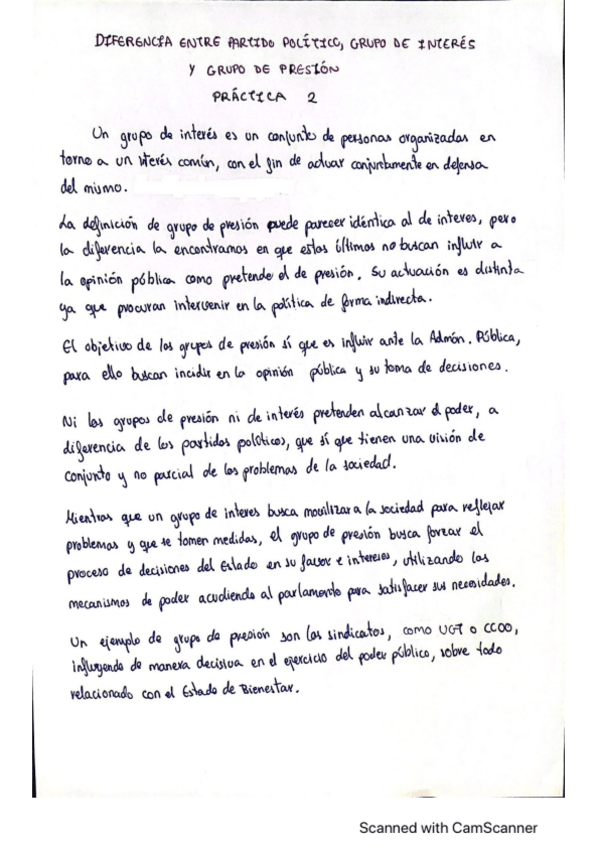 DIFERENCIA ENTRE PARTIDO POLÍTICO, GRUPO DE INTERÉS
Y GRUPO DE PRESIÓN
PRÁCTICA 2
Un grupo de interés es un conjunto de personas organizadas en
torno a un interés común, con el fin de actuar conjuntamente en defensa
del mismo.
La definición de grupo de presión puede parecer idéntica al de interes, pero
la diferencia la encontramos en que estos últimos no buscan influir a
la opinión pública como pretende el de presión. Su actuación es distinta
ya que procuran intervenir en la política de forma indirecta.
El objetivo de los grupos de presión sí que es influir ante la Admón. Pública,
para ello buscan incidir en la opinión pública y su toma de decisiones.
Ni los grupos de presión ni de interés pretenden alcanzar el poder, a
diferencia de los partidos políticos, que sí que tienen una visión de
conjunto y no parcial de los problemas de la sociedad.
Mientras que un grupo de interes busca movilizar a la sociedad para reflejar
problemas y que se tomen medidas, el grupo de presión busca forzar el
proceso de decisiones del Estado en su favor e intereses, utilizando los
mecanismos de poder acudiendo al parlamento para satisfacer sus necesidades.
Un ejemplo de grupo de presión son los sindicatos, como UGT o CCOO,
influyendo de manera decisiva en el ejercicio del poder público, sobre todo
relacionado con el Estado de Bienestar.
Scanned with CamScanner